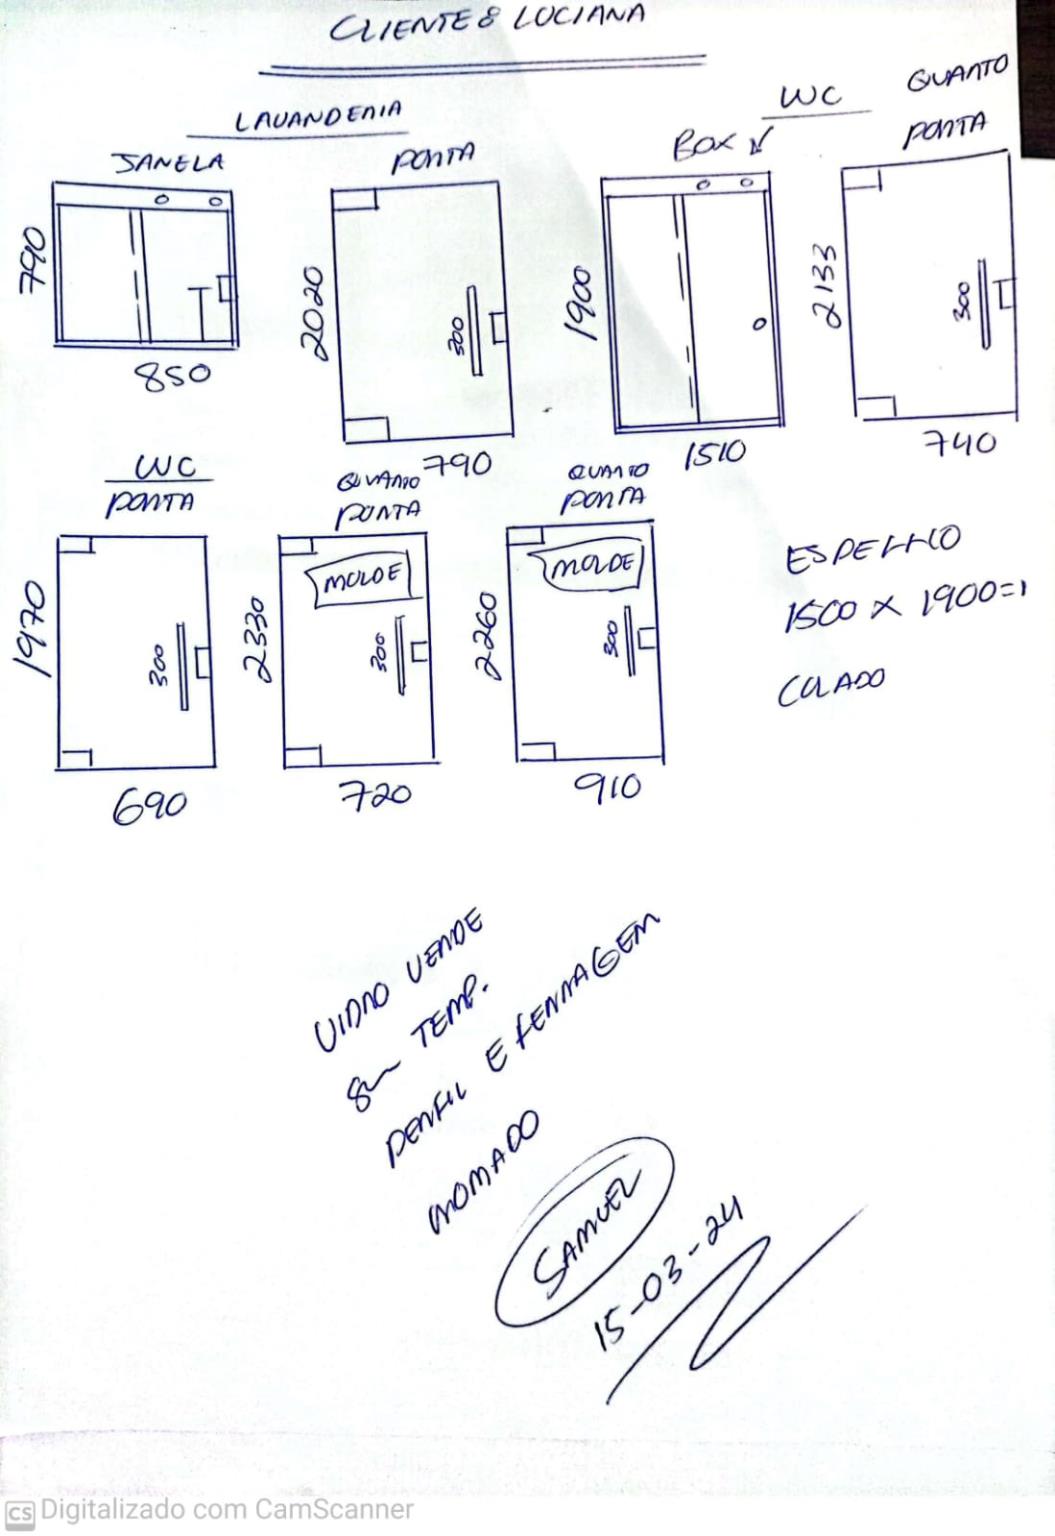 CLIENTE: LUCIANA
LAVANDERIA
JANELA
790
850
PORTA
2020
300
790
WC
BOX
1900
1510
QUARTO
PORTA
2133
300
740
WC
PORTA
1970
300
690
QUARTO
PORTA
MOLDE
2330
300
720
QUARTO
PORTA
MOLDE
2260
300
910
ESPELHO
1500 X 1900=1
COLADO
VIDRO VERDE
8m TEMP.
PERFIL E FERRAGEM
CROMADO
SAMUEL
15-03-24
CS Digitalizado com CamScanner